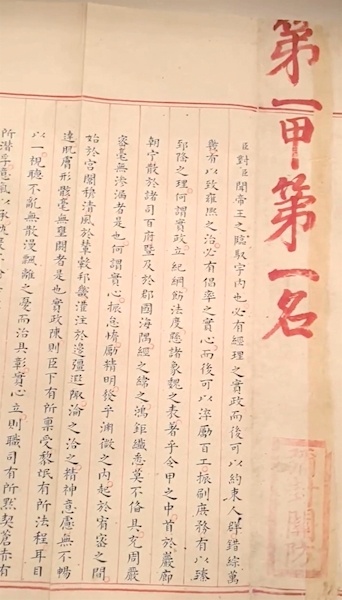 第一甲第一名
臣對臣聞帝王之臨馭宇內也必有經理之實政而後可以約束人群錯綜萬
幾有以致雍熙之治必有倡率之實心而後可以淬勵百工振刷庶務有以臻
郅隆之理何謂實政立紀綱飭法度懸諸象魏之表著乎令甲之中首於巖廊
朝寧散於諸司百府暨及於郡國海隅經之緯之鴻鉅纖悉莫不备具充周嚴
密毫無滲漏者是也何謂實心振怠惰勵精明發乎淵微之內起於宥密之間
始於宮閫穆清風於輦轂邦畿灌注於邊疆遐陬淪之洽之精神意慮無不暢
達肌膚形骸毫無壅閼者是也實政陳則臣下有所稟受黎氓有所法程耳目
以一視聽不亂無散漫飄離之憂而治具彰實心立則職司有所默契蒼赤有
所潛孚意氣以承